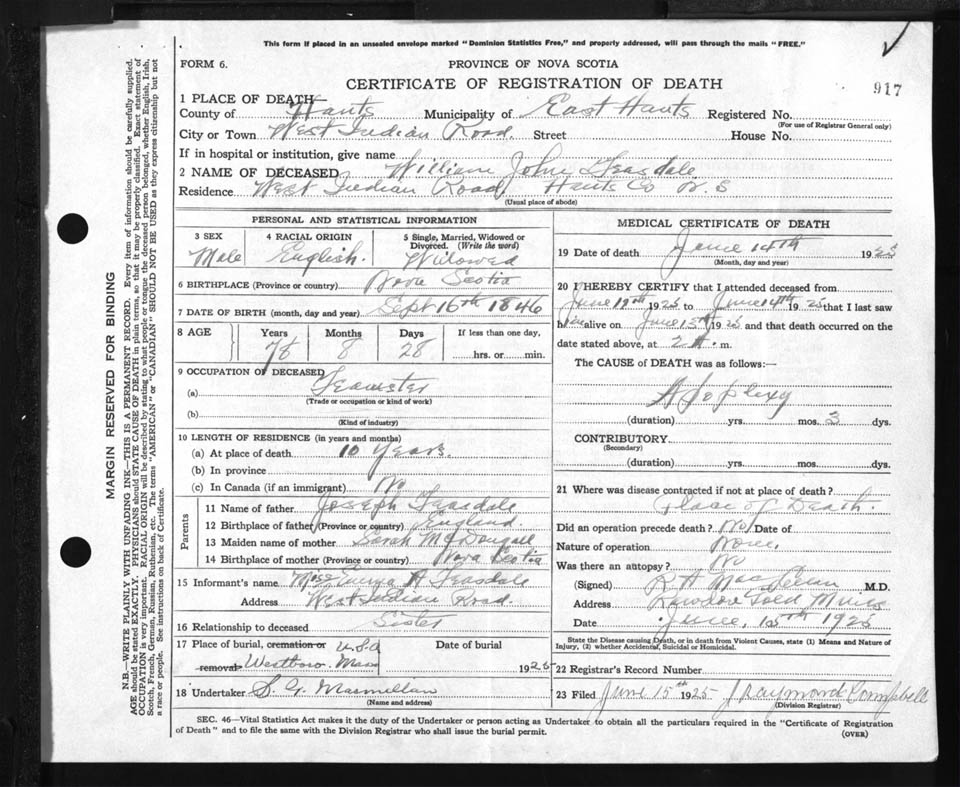 This form if placed in an unsealed envelope marked "Dominion Statistics Free," and properly addressed, will pass through the mails "FREE."
FORM 6.
PROVINCE OF NOVA SCOTIA
CERTIFICATE OF REGISTRATION OF DEATH
917
1 PLACE OF DEATH
County of Hants Municipality of East Hants Registered No.
(For use of Registrar General only)
City or Town West Indian Road Street House No.
If in hospital or institution, give name
2 NAME OF DECEASED William John Teasdale
Residence West Indian Road Hants Co N.S
(Usual place of abode)
PERSONAL AND STATISTICAL INFORMATION
3 SEX Male
4 RACIAL ORIGIN English.
5 Single, Married, Widowed or Divorced. (Write the word) Widowed
6 BIRTHPLACE (Province or country) Nova Scotia
7 DATE OF BIRTH (month, day and year) Sept 16th 1846
8 AGE Years Months Days If less than one day,
78 8 28 hrs. or min.
9 OCCUPATION OF DECEASED
(a) Teamster
(Trade or occupation or kind of work)
(b)
(Kind of industry)
10 LENGTH OF RESIDENCE (in years and months)
(a) At place of death 10 Years.
(b) In province
(c) In Canada (if an immigrant) No
Parents
11 Name of father Joseph Teasdale
12 Birthplace of father (Province or country) England.
13 Maiden name of mother Sarah McDougall
14 Birthplace of mother (Province or country) Nova Scotia
15 Informant's name Miss Emma A Teasdale
Address West Indian Road
16 Relationship to deceased Sister
17 Place of burial, cremation or U.S.A Date of burial
removal Westboro. Mass 1925
18 Undertaker S. G. Macmillan
(Name and address)
MEDICAL CERTIFICATE OF DEATH
19 Date of death June 14th 1925
(Month, day and year)
20 I HEREBY CERTIFY that I attended deceased from
June 12th 1925 to June 14th 1925 that I last saw
him alive on June 13th 1925 and that death occurred on the
date stated above, at 2 A.m.
The CAUSE of DEATH was as follows:—
Apoplexy
(duration) yrs. mos. 3 dys.
CONTRIBUTORY
(Secondary)
(duration) yrs. mos. dys.
21 Where was disease contracted if not at place of death?
Place of Death.
Did an operation precede death? No Date of
Nature of operation None.
Was there an autopsy? No
(Signed) R H MacLellan M.D.
Address Rawdon Gold Mines
Date June, 15th 1925
State the Disease causing Death, or in death from Violent Causes, state (1) Means and Nature of
Injury, (2) whether Accidental, Suicidal or Homicidal.
22 Registrar's Record Number
23 Filed June 15th 1925 J Raymond Campbell
(Division Registrar)
SEC. 46—Vital Statistics Act makes it the duty of the Undertaker or person acting as Undertaker to obtain all the particulars required in the "Certificate of Registration
of Death" and to file the same with the Division Registrar who shall issue the burial permit.
(OVER)
MARGIN RESERVED FOR BINDING
N.B.—WRITE PLAINLY WITH UNFADING INK—THIS IS A PERMANENT RECORD. Every item of information should be carefully supplied.
AGE should be stated EXACTLY. PHYSICIANS should STATE CAUSE OF DEATH in plain terms, so that it may be properly classified. Exact statement of
OCCUPATION is very important. RACIAL ORIGIN will be described by stating to what people or tongue the deceased person belonged, whether English, Irish,
Scotch, French, German, Russian, Ruthenian, etc. The terms "AMERICAN" or "CANADIAN" SHOULD NOT BE USED as they express citizenship but not
a race or people. See instructions on back of Certificate.